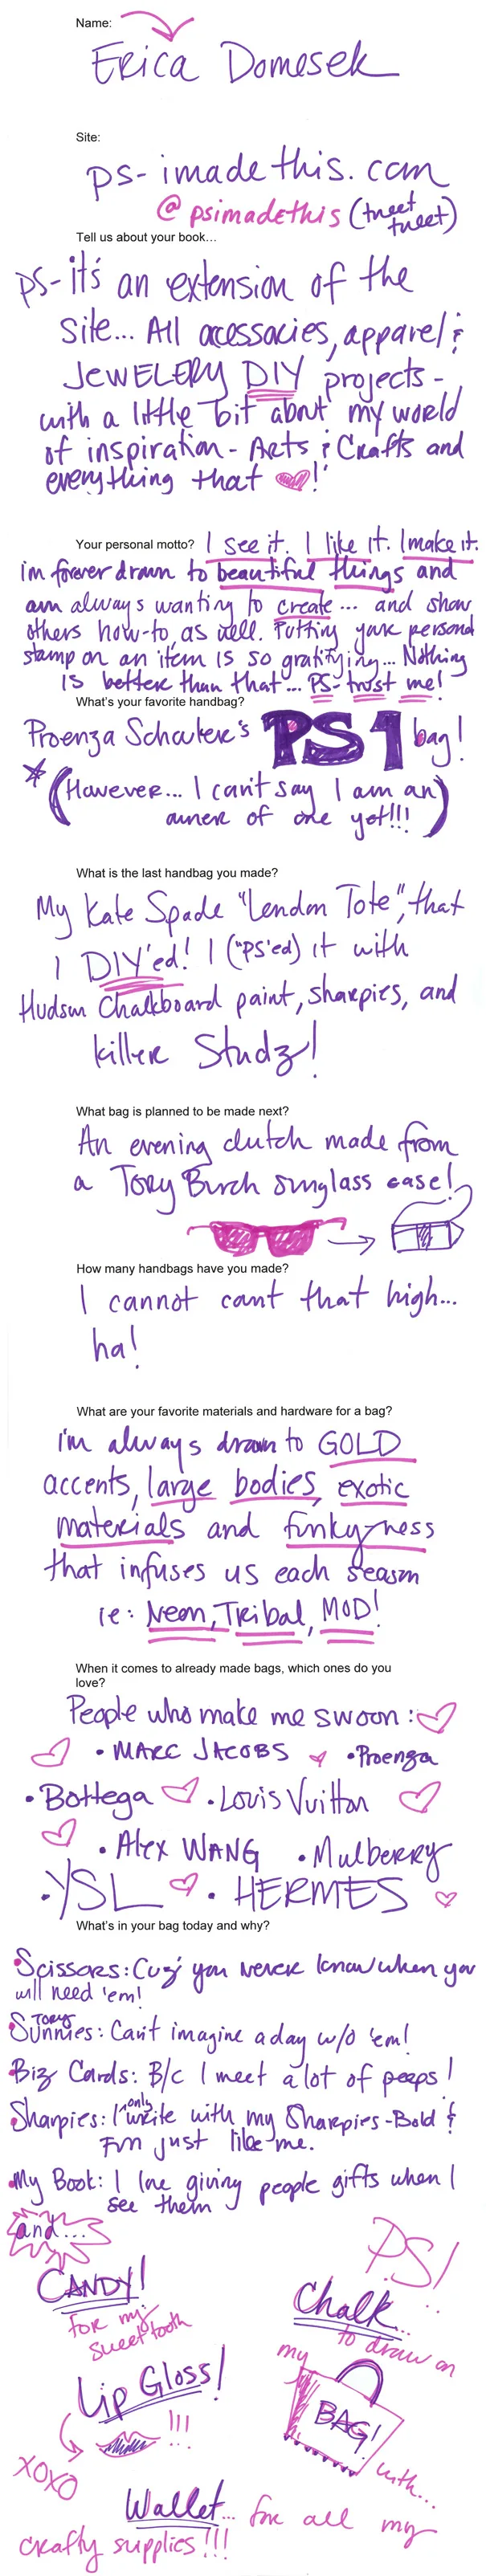 Name:
Erica Domesek
Site:
ps-imadethis.com
@psimadethis (tweet
tweet)
Tell us about your book...
ps-it's an extension of the
site... All acessories, apparel &
JEWELERY DIY projects -
with a little bit about my world
of inspiration - Arts & Crafts and
everything that ♥!
Your personal motto? I see it. I like it. I make it.
im forever drawn to beautiful things and
am always wanting to create... and show
others how-to as well. Putting your personal
stamp on an item is so gratifying... Nothing
is better than that... PS-trust me!
What's your favorite handbag?
Proenza Schouler's PS1 bag!
* (However... I can't say I am an
owner of one yet!!!)
What is the last handbag you made?
My Kate Spade "London Tote", that
I DIY'ed! I ("PS'ed) it with
Hudson Chalkboard paint, sharpies, and
killer Studz!
What bag is planned to be made next?
An evening clutch made from
a Tory Burch sunglass case!
How many handbags have you made?
I cannot count that high...
ha!
What are your favorite materials and hardware for a bag?
I'm always drawn to GOLD
accents, large bodies, exotic
materials and funky-ness
that infuses us each season
ie: Neon, Tribal, MOD!
When it comes to already made bags, which ones do you
love?
People who make me swoon: ♥
• MARC JACOBS • Proenza
• Bottega • Louis Vuitton
• Alex WANG • Mulberry
• YSL • HERMES
What's in your bag today and why?
• Scissors: Cuz' you never know when you
will need 'em!
Tory
Sunnies: Can't imagine a day w/o 'em!
Biz Cards: B/c I meet a lot of peeps!
Sharpies: I only write with my Sharpies - Bold &
Fun just like me.
• My Book: I love giving people gifts when I
see them
and...
PS!
CANDY!
for my
sweet tooth
Chalk...
to draw on
my
BAG!
with...
Lip Gloss!
!!!
XOXO
Wallet... for all my
crafty supplies!!!